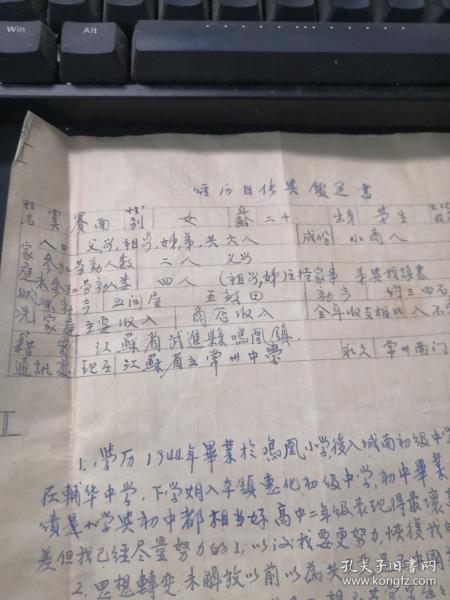 Win
Alt
经历自传与鑑定書
姓名 雲賽南 性別 女 年齡 二十 出身 学生
家庭狀況 人口 父母,祖母,姊,弟,共六人 成份 小商人
参加劳動人数 二人 父母
未参加劳動人数 四人 (祖母,姊)主持家事 弟與我讀書
五间屋 五畝田
家庭主要收入 商店收入 全年收支相比入不
籍貫 江蘇省武進縣鳴凰鎮
通訊處 現在 江蘇省立常州中學 永久 常州南门
1. 学历 1944年畢業於鳴凰小学後入城南初級中学
在輔华中学,下学期入李鎮惠化初級中学,初中畢業
績是小学與初中都相当好高中二年級表现得最壞
差但我已經尽量努力的了,以後我要更努力恢復我的
2. 思想轉变.未解放以前以為共
孔夫子旧书网
book.kongfz.com